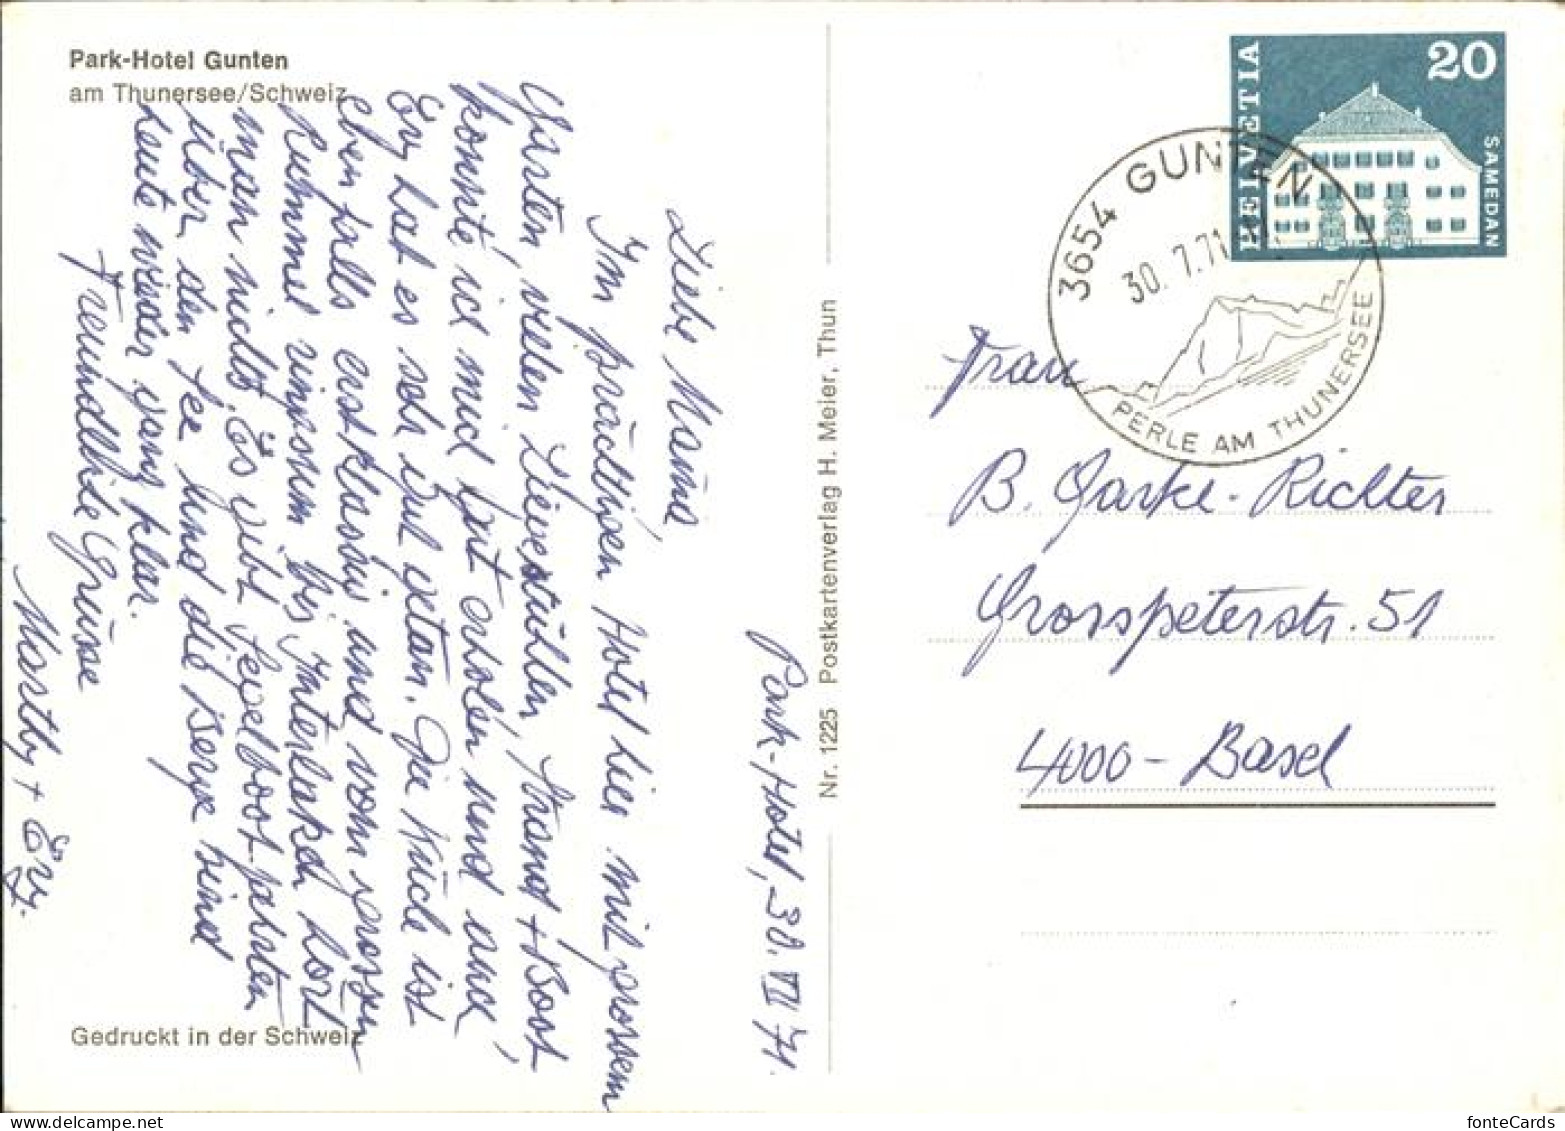 Park-Hotel Gunten
am Thunersee/Schweiz
Park-Hotel, 30. VII 71.
Liebe Mama,
Im prächtigen Hotel hier mit grossem
Garten, vielen Liegestühlen, Strand + Boot
konnte ich mich gut erholen und auch
Evy hat es sehr gut getan. Die Küche ist
ebenfalls erstklassig und vom grossen
Rummel ringsum bis Interlaken hört
man nichts. Es gibt Segelbootfahrten
über den See und die Berge sind
heute wieder ganz klar.
Freundliche Grüsse
Marthy + Evy.
Gedruckt in der Schweiz
Nr. 1225 Postkartenverlag H. Meier, Thun
HELVETIA
20
SAMEDAN
3654 GUNTEN
30.7.71
PERLE AM THUNERSEE
Frau
B. Garke-Richter
Grosspeterstr. 51
4000-Basel
fonteCards
www.delcampe.net